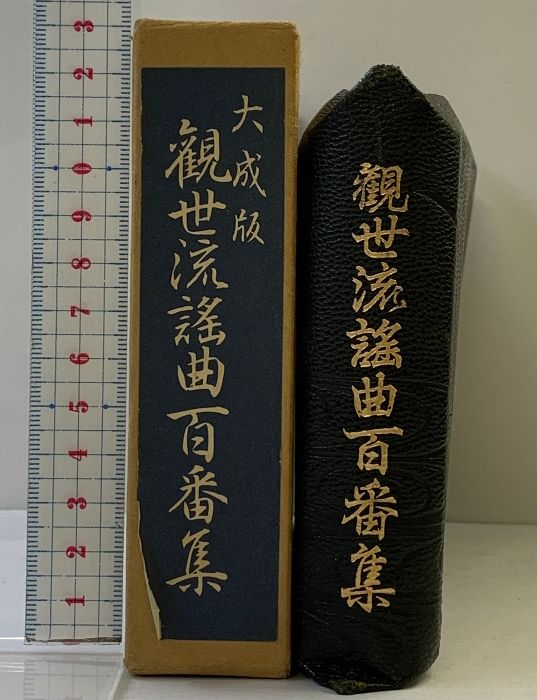 大成版
觀世流謠曲百番集
觀世流謠曲百番集
3
2
1
0
9
8
7
6
5
4
3
2
1